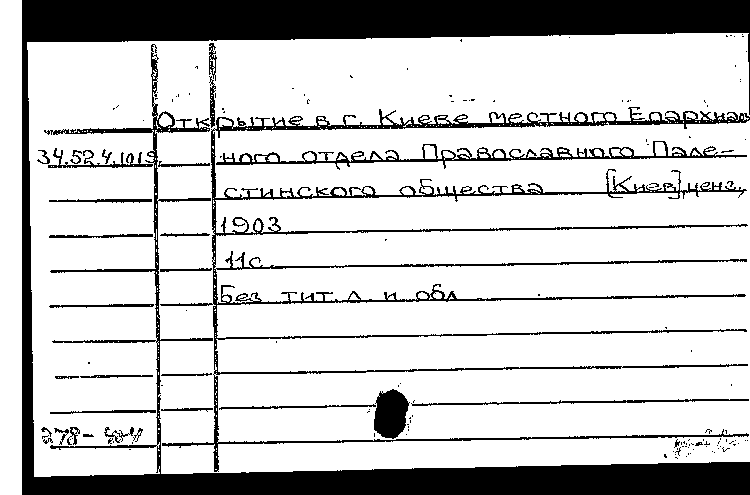 Открытие в г. Киеве местного Епархиаль
34.52.4.1019 ного отдела Православного Пале-
стинского общества [Киев], ценз.,
1903
11с.
Без тит. л. и обл.